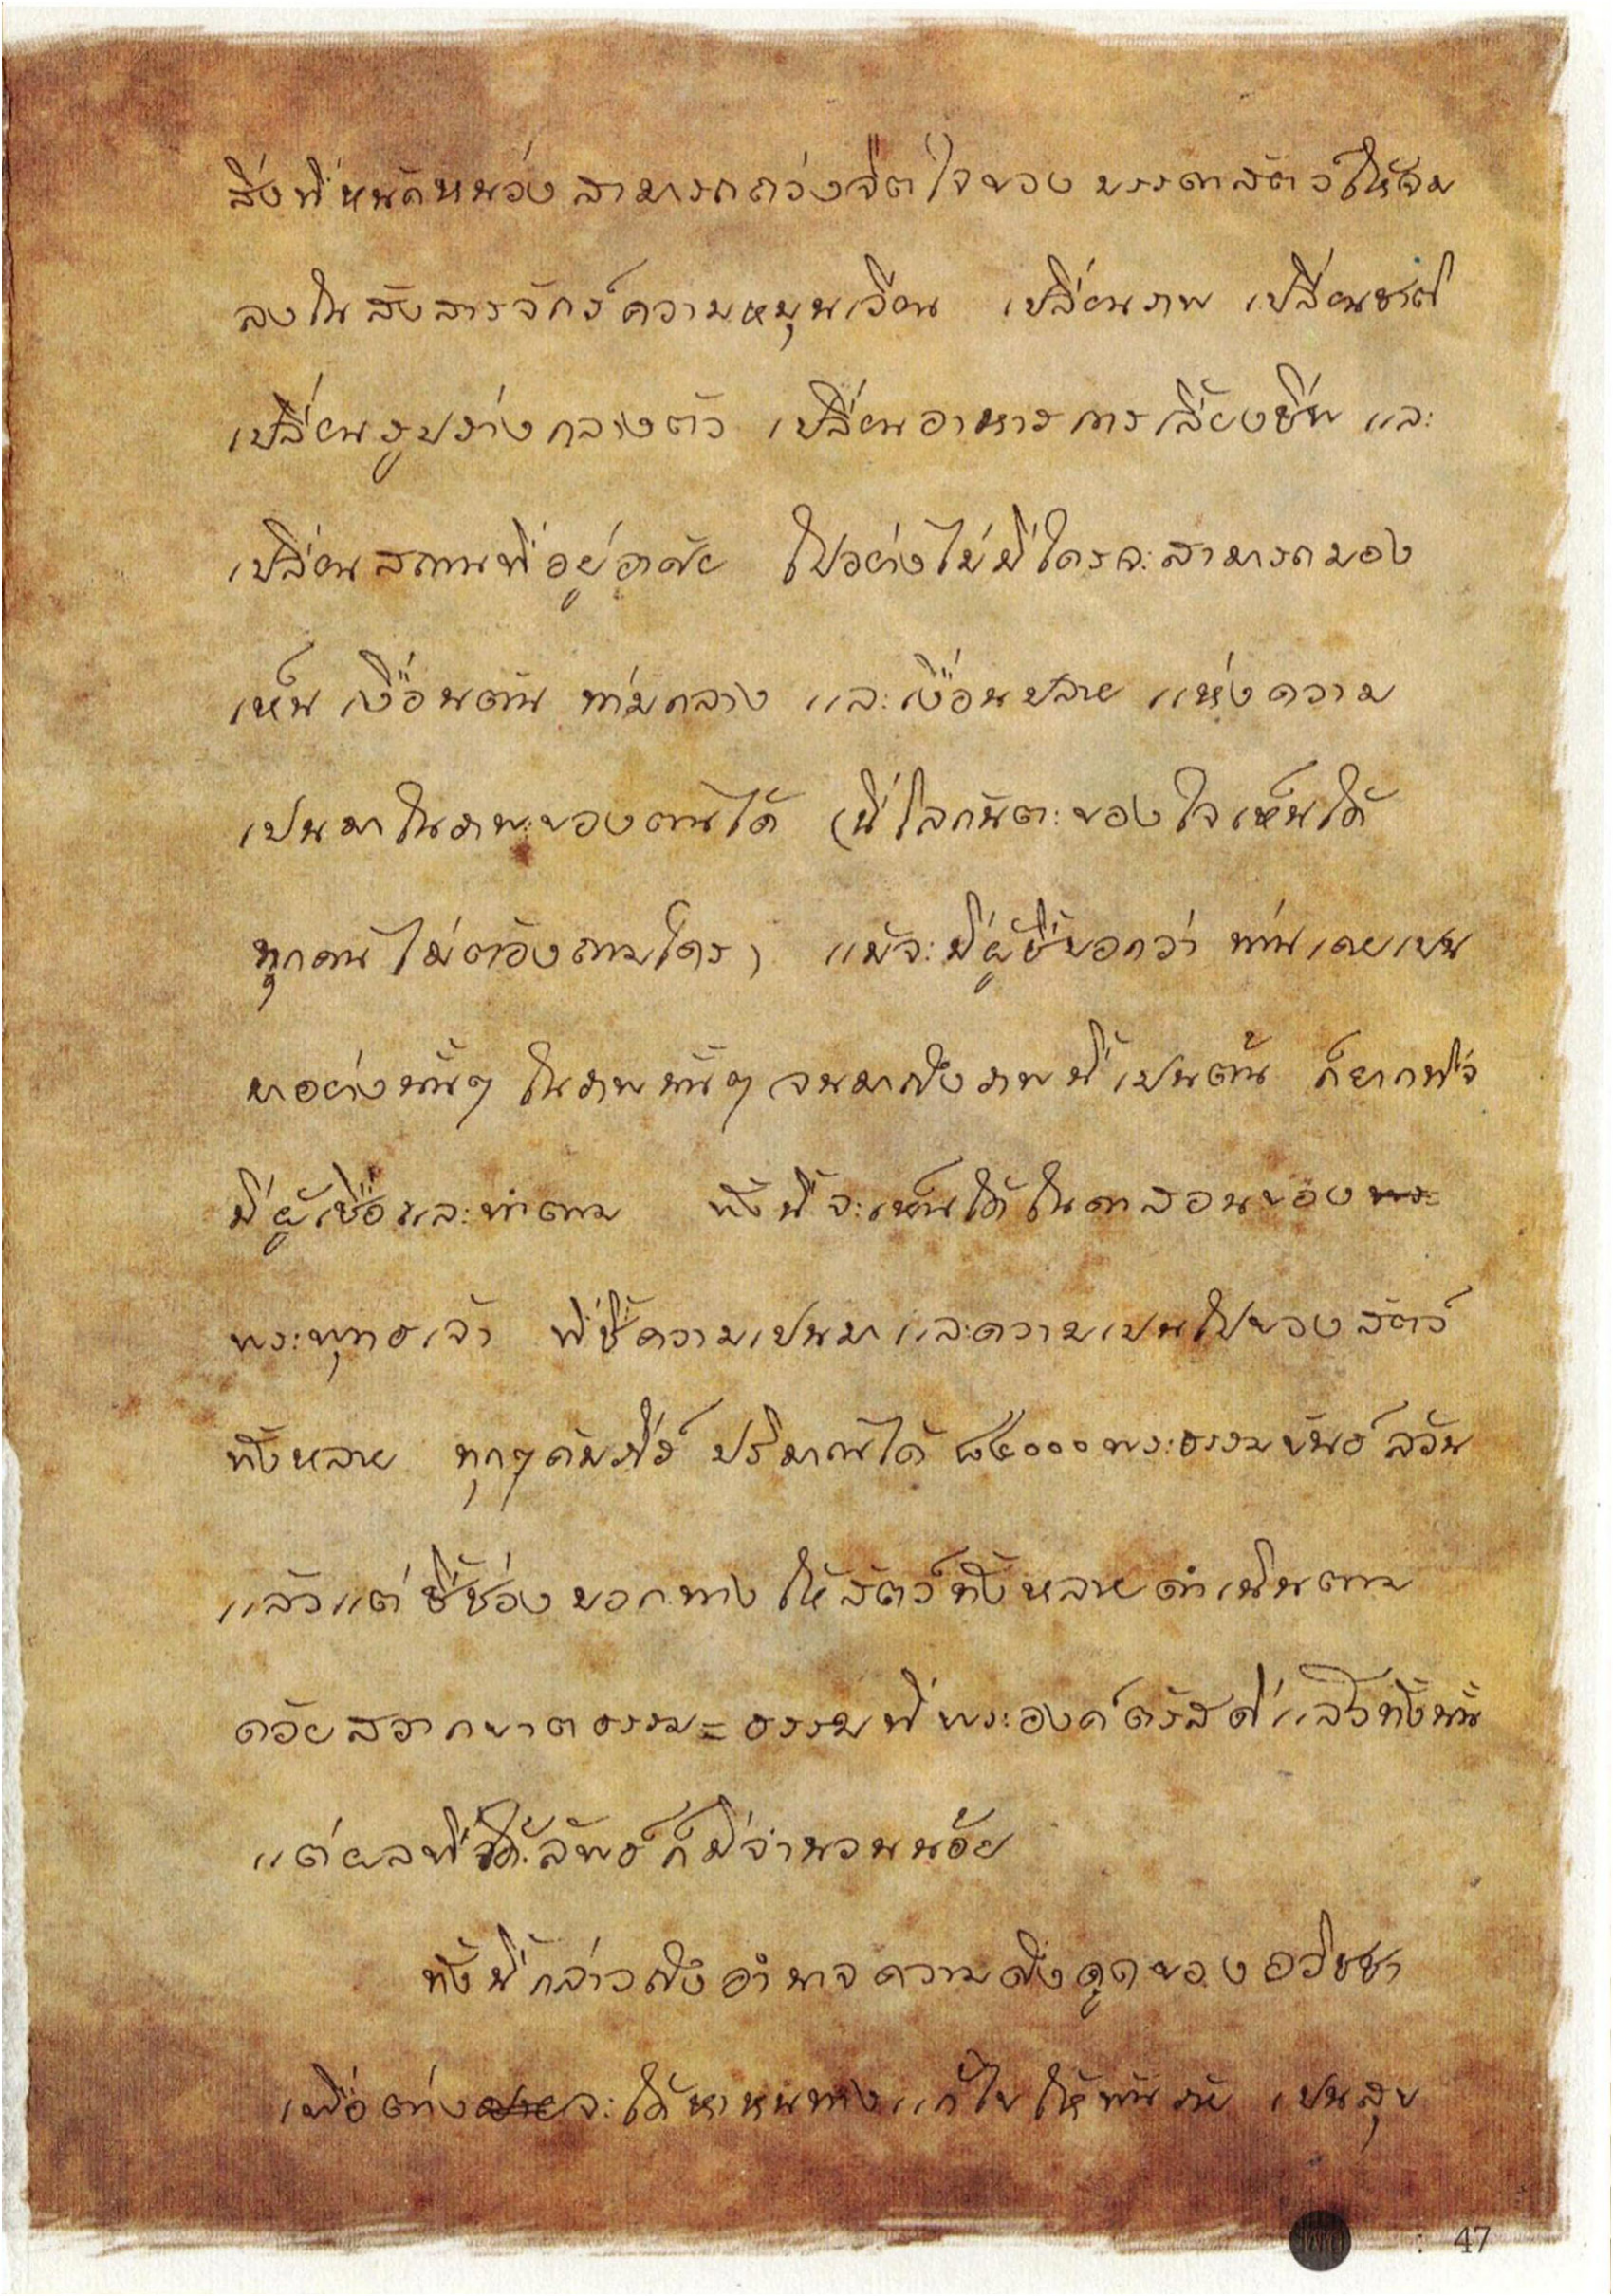 สิ่งที่หนักหน่วงสามารถถ่วงจิตใจของบรรดาสัตว์ให้จม
ลงในสังสารจักร์ความหมุนเวียน เปลี่ยนภพ เปลี่ยนชาติ
เปลี่ยนรูปร่างกลางตัว เปลี่ยนอาหารการเลี้ยงชีพ และ
เปลี่ยนสถานที่อยู่อาศัย ไปอย่างไม่มีใครจะสามารถมอง
เห็น เงื่อนต้น ท่ามกลาง และเงื่อนปลาย แห่งความ
เปนมาในภพของตนได้ (นี่โลกันตะของใจเห็นได้
ทุกคน ไม่ต้องถามใคร) แม้จะมีผู้ชี้บอกว่า ท่านเคยเปน
มาอย่างนั้นๆ ในภพนั้นๆ จนมาถึงภพนี้ เปนต้น ก็ยากที่จะ
มีผู้เชื่อและทำตาม ทั้งนี้จะเห็นได้ในคำสอนของ
พระพุทธเจ้า ที่ชี้ความเปนมาและความเปนไปของสัตว์
ทั้งหลาย ทุกๆคัมภีร์ ปริมาณได้ ๘๔๐๐๐ พระธรรมขันธ์ ล้วน
แล้วแต่ชี้ช่องบอกทาง ให้สัตว์ทั้งหลายดำเนินตาม
ด้วยสวากขาตธรรม = ธรรมที่พระองค์ตรัสดีแล้วทั้งนั้น
แต่ผลที่ได้ลัพธ์ก็มีจำนวนน้อย
ทั้งนี้กล่าวถึงอำนาจความดึงดูดของอวิชชา
เพื่อต่างจะได้หาหนทางแก้ไขให้พ้นภัย เปนสุข
47